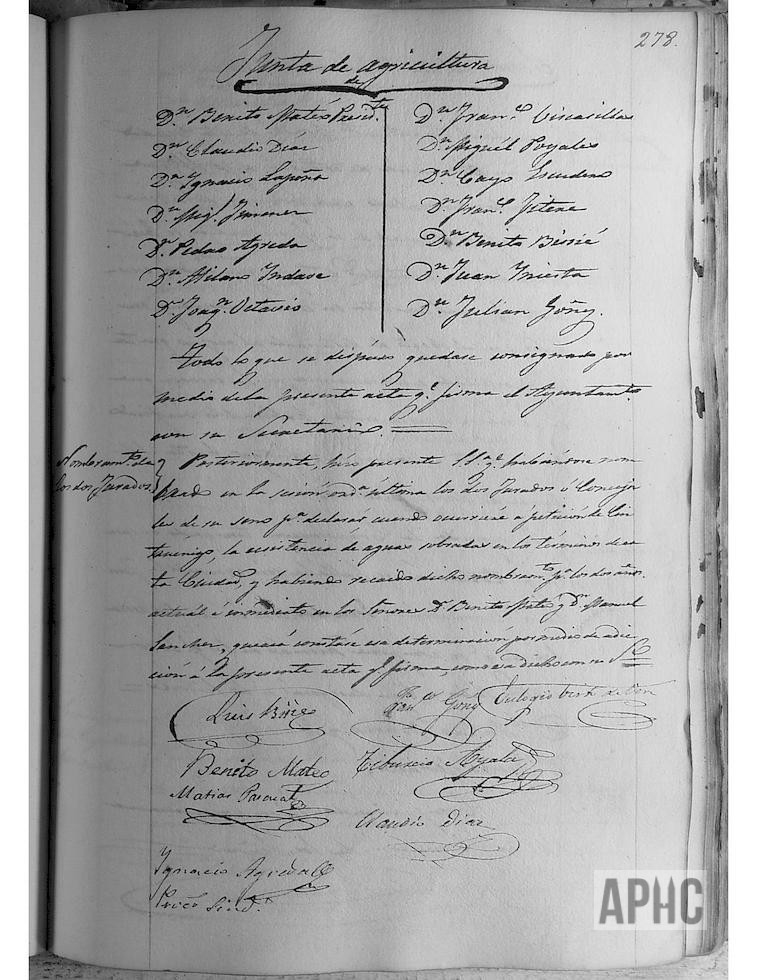 278.
Junta de agricultura
de
Dn. Benito Matéo Presidte.
Dn. Claudio Díaz
Dn. Ignacio Lapeña
Dn. Migl. Jimenez
Dn. Pedro Agreda
Dn. Milano Indave
Dn. Joaqn. Octavio
Dn. Franco. Viscasillas
Dn. Miguél Poyales
Dn. Cayo Escudero
Dn. Franco.
Dn. Benito
Dn. Juan Iniesta
Dn. Julian Goñy.
Todo lo que se dispuso quedase consignado por
medio de la presente acta qe. firma el Ayuntamto.
con su Secretario.
Nombramto. de
los dos Jurados.
Posteriormente, hizo presente S.S.a qe. habiéndose nom
brado en la sesión orda. última los dos Jurados ó Conceja
les de su seno pa. declarar cuando ocurriere á petición de Cin
truénigo, la existencia de aguas sobradas en los términos de es
ta Ciudad, y habiendo recaido dicho nombramto. pa. los dos años
actual é inmediato en los Señores Dn. Benito Mateo y Dn. Manuel
Sanchez, queria constase esa determinación por medio de adi
ción á la presente acta qe. firma, como va dicho con mi
Luis
Franco. Goñy
Eulogio
Benito Mateo
Tiburcio Ayala
Matias Pascual
Claudio Díaz
Ignacio Agreda
Procr. Síndo.
APHC